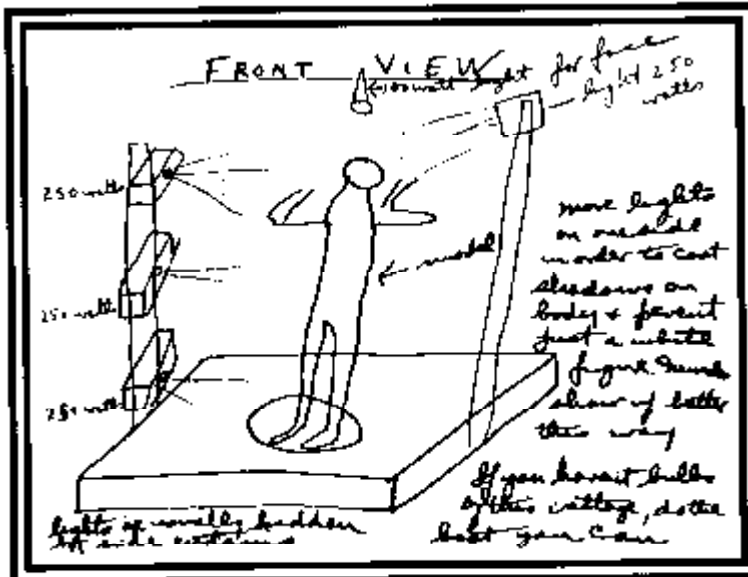 FRONT VIEW
100 watt light
for face
light 250
watts
250 watts
250 watts
250 watts
model
more lights
on one side
in order to cast
shadows on
body & prevent
just a white
figure. Muscles
show up better
this way
If you havent bulbs
of this wattage, do the
best you can
lights usually hidden
side